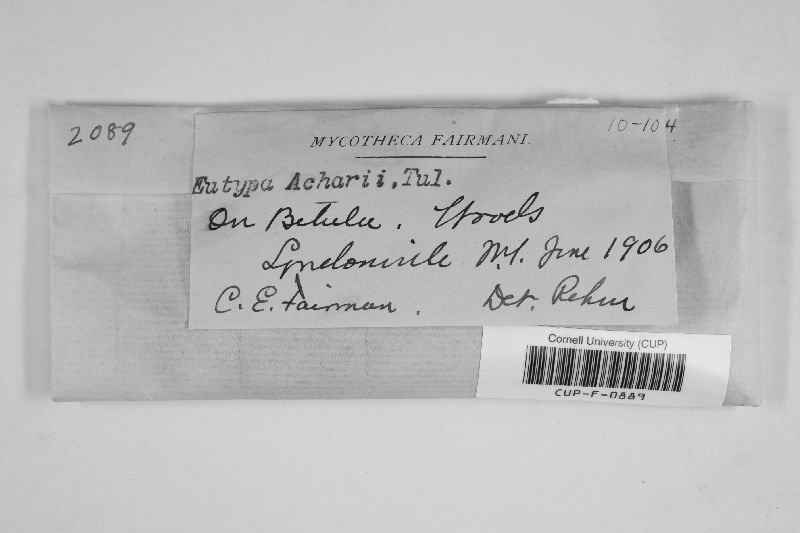 2089
10-104
MYCOTHECA FAIRMANI.
Eutypa Acharii, Tul.
On Betulae. Woods
Lyndonville N.Y. June 1906
C. E. Fairman. Det. Rehm
Cornell University (CUP)
CUP-F-0889